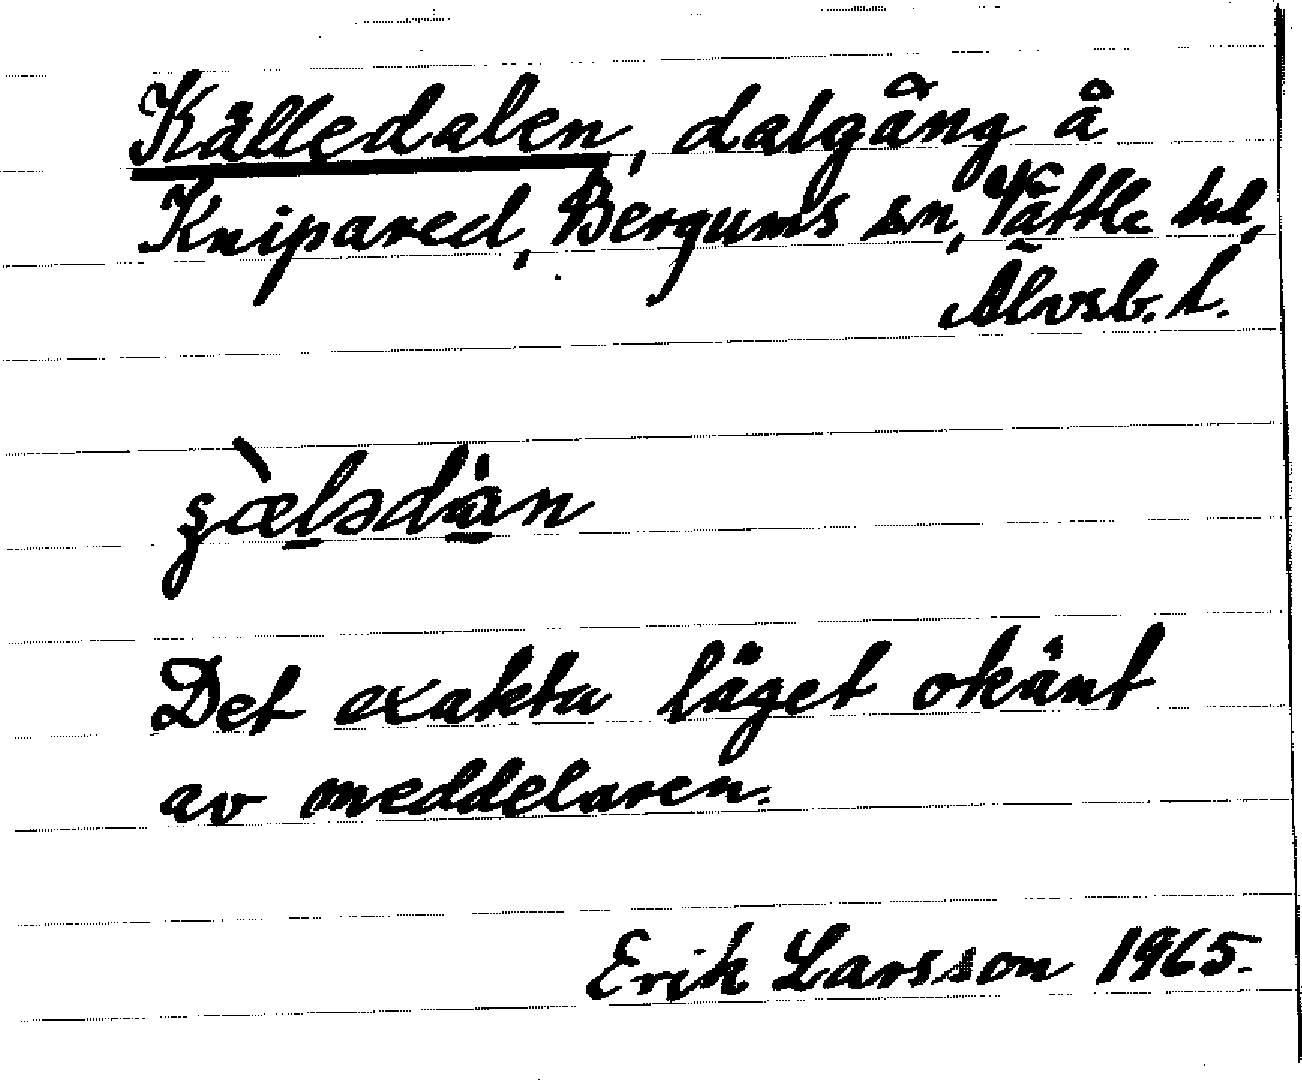 Källedalen, dalgång å
Knipared, Bergums sn, Vättle hd,
Älvsb. l.
Det exakta läget okänt
av meddelaren.
Erik Larsson 1965.